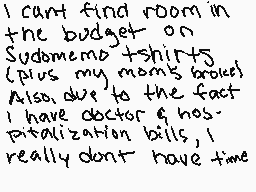 I cant find room in
the budget on
Sudomemo tshirts
(plus my mom's broke)
Also, due to the fact
I have doctor & hos-
pitalization bills, I
really dont have time